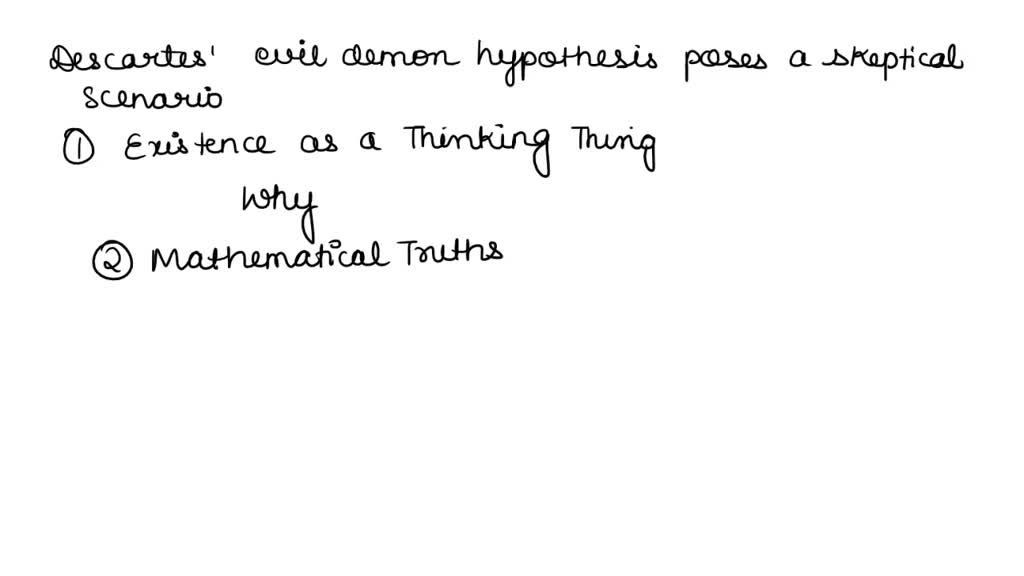 Descartes' evil demon hypothesis poses a skeptical
scenario
① Existence as a Thinking Thing
Why
② Mathematical Truths